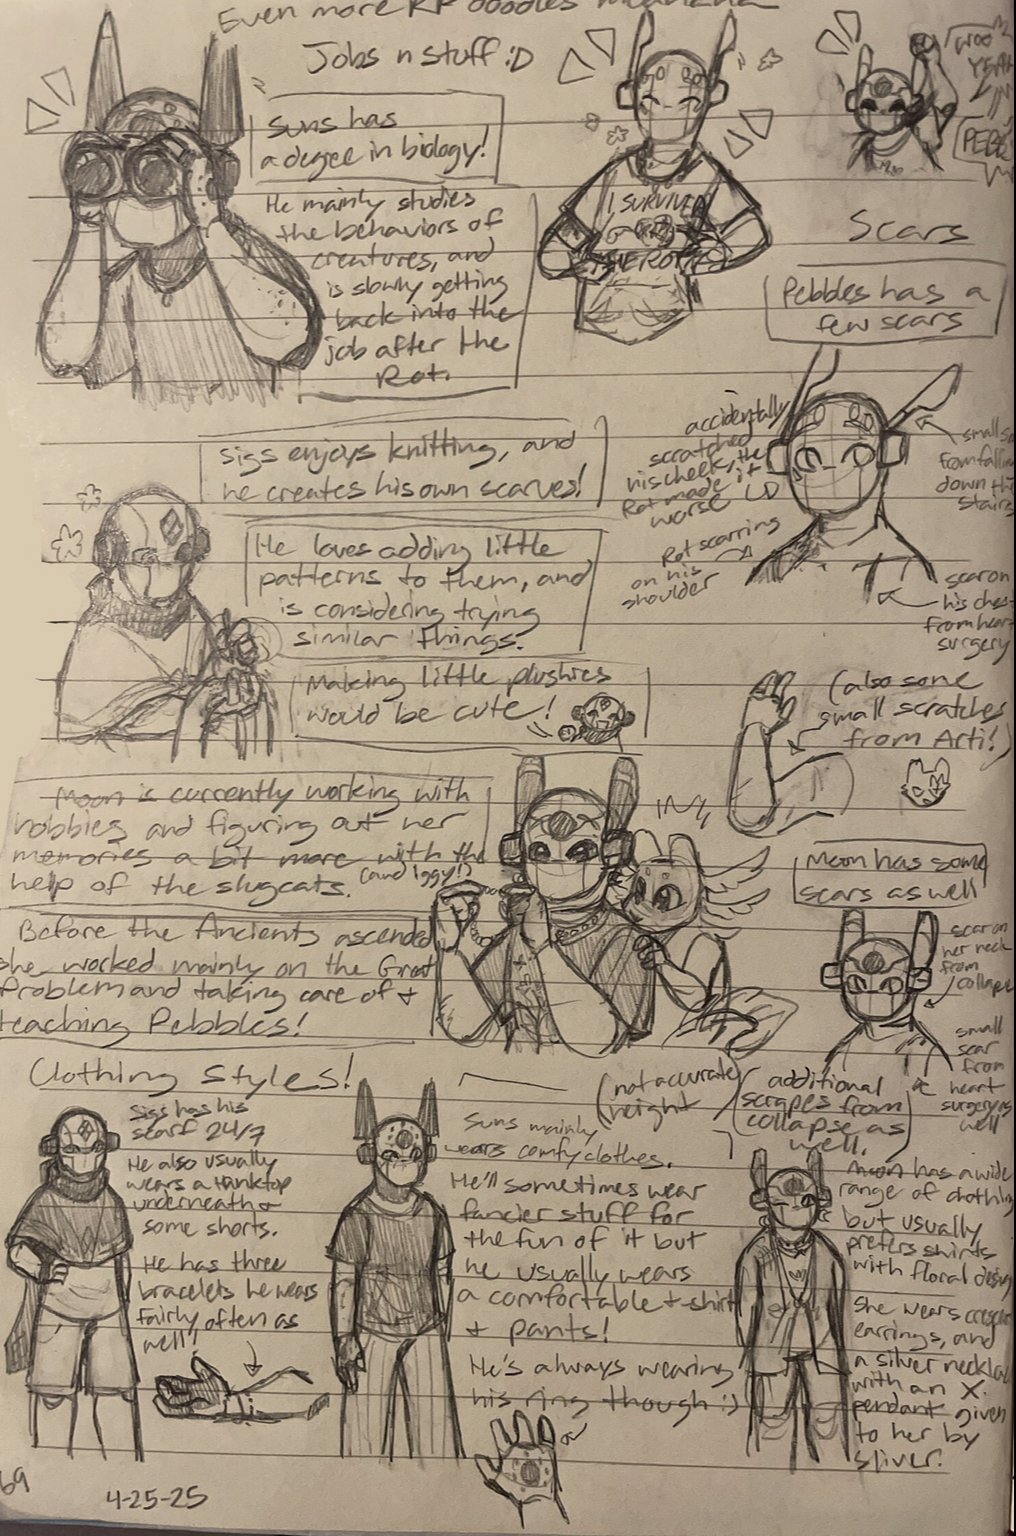 Even more RP doodles
Jobs n stuff :D
Suns has
a degree in biology!
He mainly studies
the behaviors of
creatures, and
is slowly getting
back into the
job after the
Rot.
I SURVIVED
THE ROT
WOO
YEAH
Scars
Pebbles has a
few scars
accidentally
scratched
his cheek, the
Rot made it
worse
small
from falling
down the
stairs
Rot scarring
on his
shoulder
scar on
his chest
from heart
surgery
(also some
small scratches
from Arti!)
Sigs enjoys knitting, and
he creates his own scarves!
He loves adding little
patterns to them, and
is considering trying
similar things.
Making little plushies
would be cute!
Moon is currently working with
hobbies and figuring out her
memories a bit more with the
help of the slugcats. (and Iggy!)
Before the Ancients ascended
she worked mainly on the Great
Problem and taking care of +
teaching Pebbles!
Moon has some
scars as well
scar on
her neck
from
collapse
small
scar
from
heart
surgery as
well
(additional
scrapes from
collapse as
well.)
Clothing styles!
(not accurate
height)
Sigs has his
scarf 24/7
He also usually
wears a tanktop
underneath +
some shorts.
He has three
bracelets he wears
fairly often as
well!
Suns mainly
wears comfy clothes.
He'll sometimes wear
fancier stuff for
the fun of it but
he usually wears
a comfortable t-shirt
+ pants!
He's always wearing
his ring though :)
Moon has a wide
range of clothing
but usually
prefers shirts
with floral design
She wears crescent
earrings, and
a silver necklace
with an X
pendant given
to her by
Sliver.
69
4-25-25